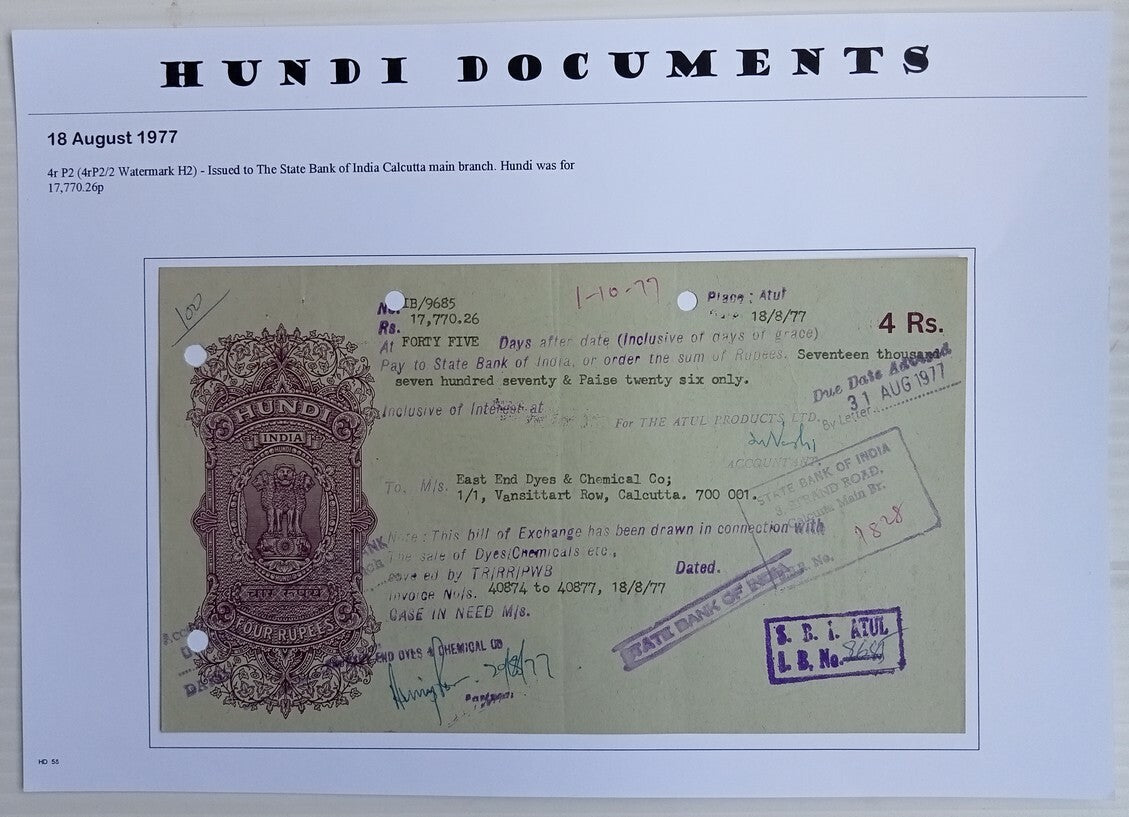 HUNDI DOCUMENTS
18 August 1977
4r P2 (4rP2/2 Watermark H2) - Issued to The State Bank of India Calcutta main branch. Hundi was for
17,770.26p
100
No. IB/9685
1-10-77
Place: Atul
18/8/77
Rs. 17,770.26
4 Rs.
At FORTY FIVE Days after date (Inclusive of days of grace)
Pay to State Bank of India, or order the sum of Rupees. Seventeen thousand
seven hundred seventy & Paise twenty six only.
Due Date Advised
31 AUG 1977
By Letter
Inclusive of Interest at
For THE ATUL PRODUCTS LTD.
ACCOUNTANT.
HUNDI
INDIA
चार रुपये
FOUR RUPEES
To. M/s. East End Dyes & Chemical Co;
1/1, Vansittart Row, Calcutta. 700 001.
STATE BANK OF INDIA
STRAND ROAD.
Calcutta Main Br.
1828
No.
Note: This bill of Exchange has been drawn in connection with
The sale of Dyes/Chemicals etc.,
covered by TR/RR/PWB Dated.
Invoice No/s. 40874 to 40877, 18/8/77
CASE IN NEED M/s.
STATE BANK OF INDIA
S. B. I. ATUL
I. B. No.
END DYES & CHEMICAL CO
HD 55